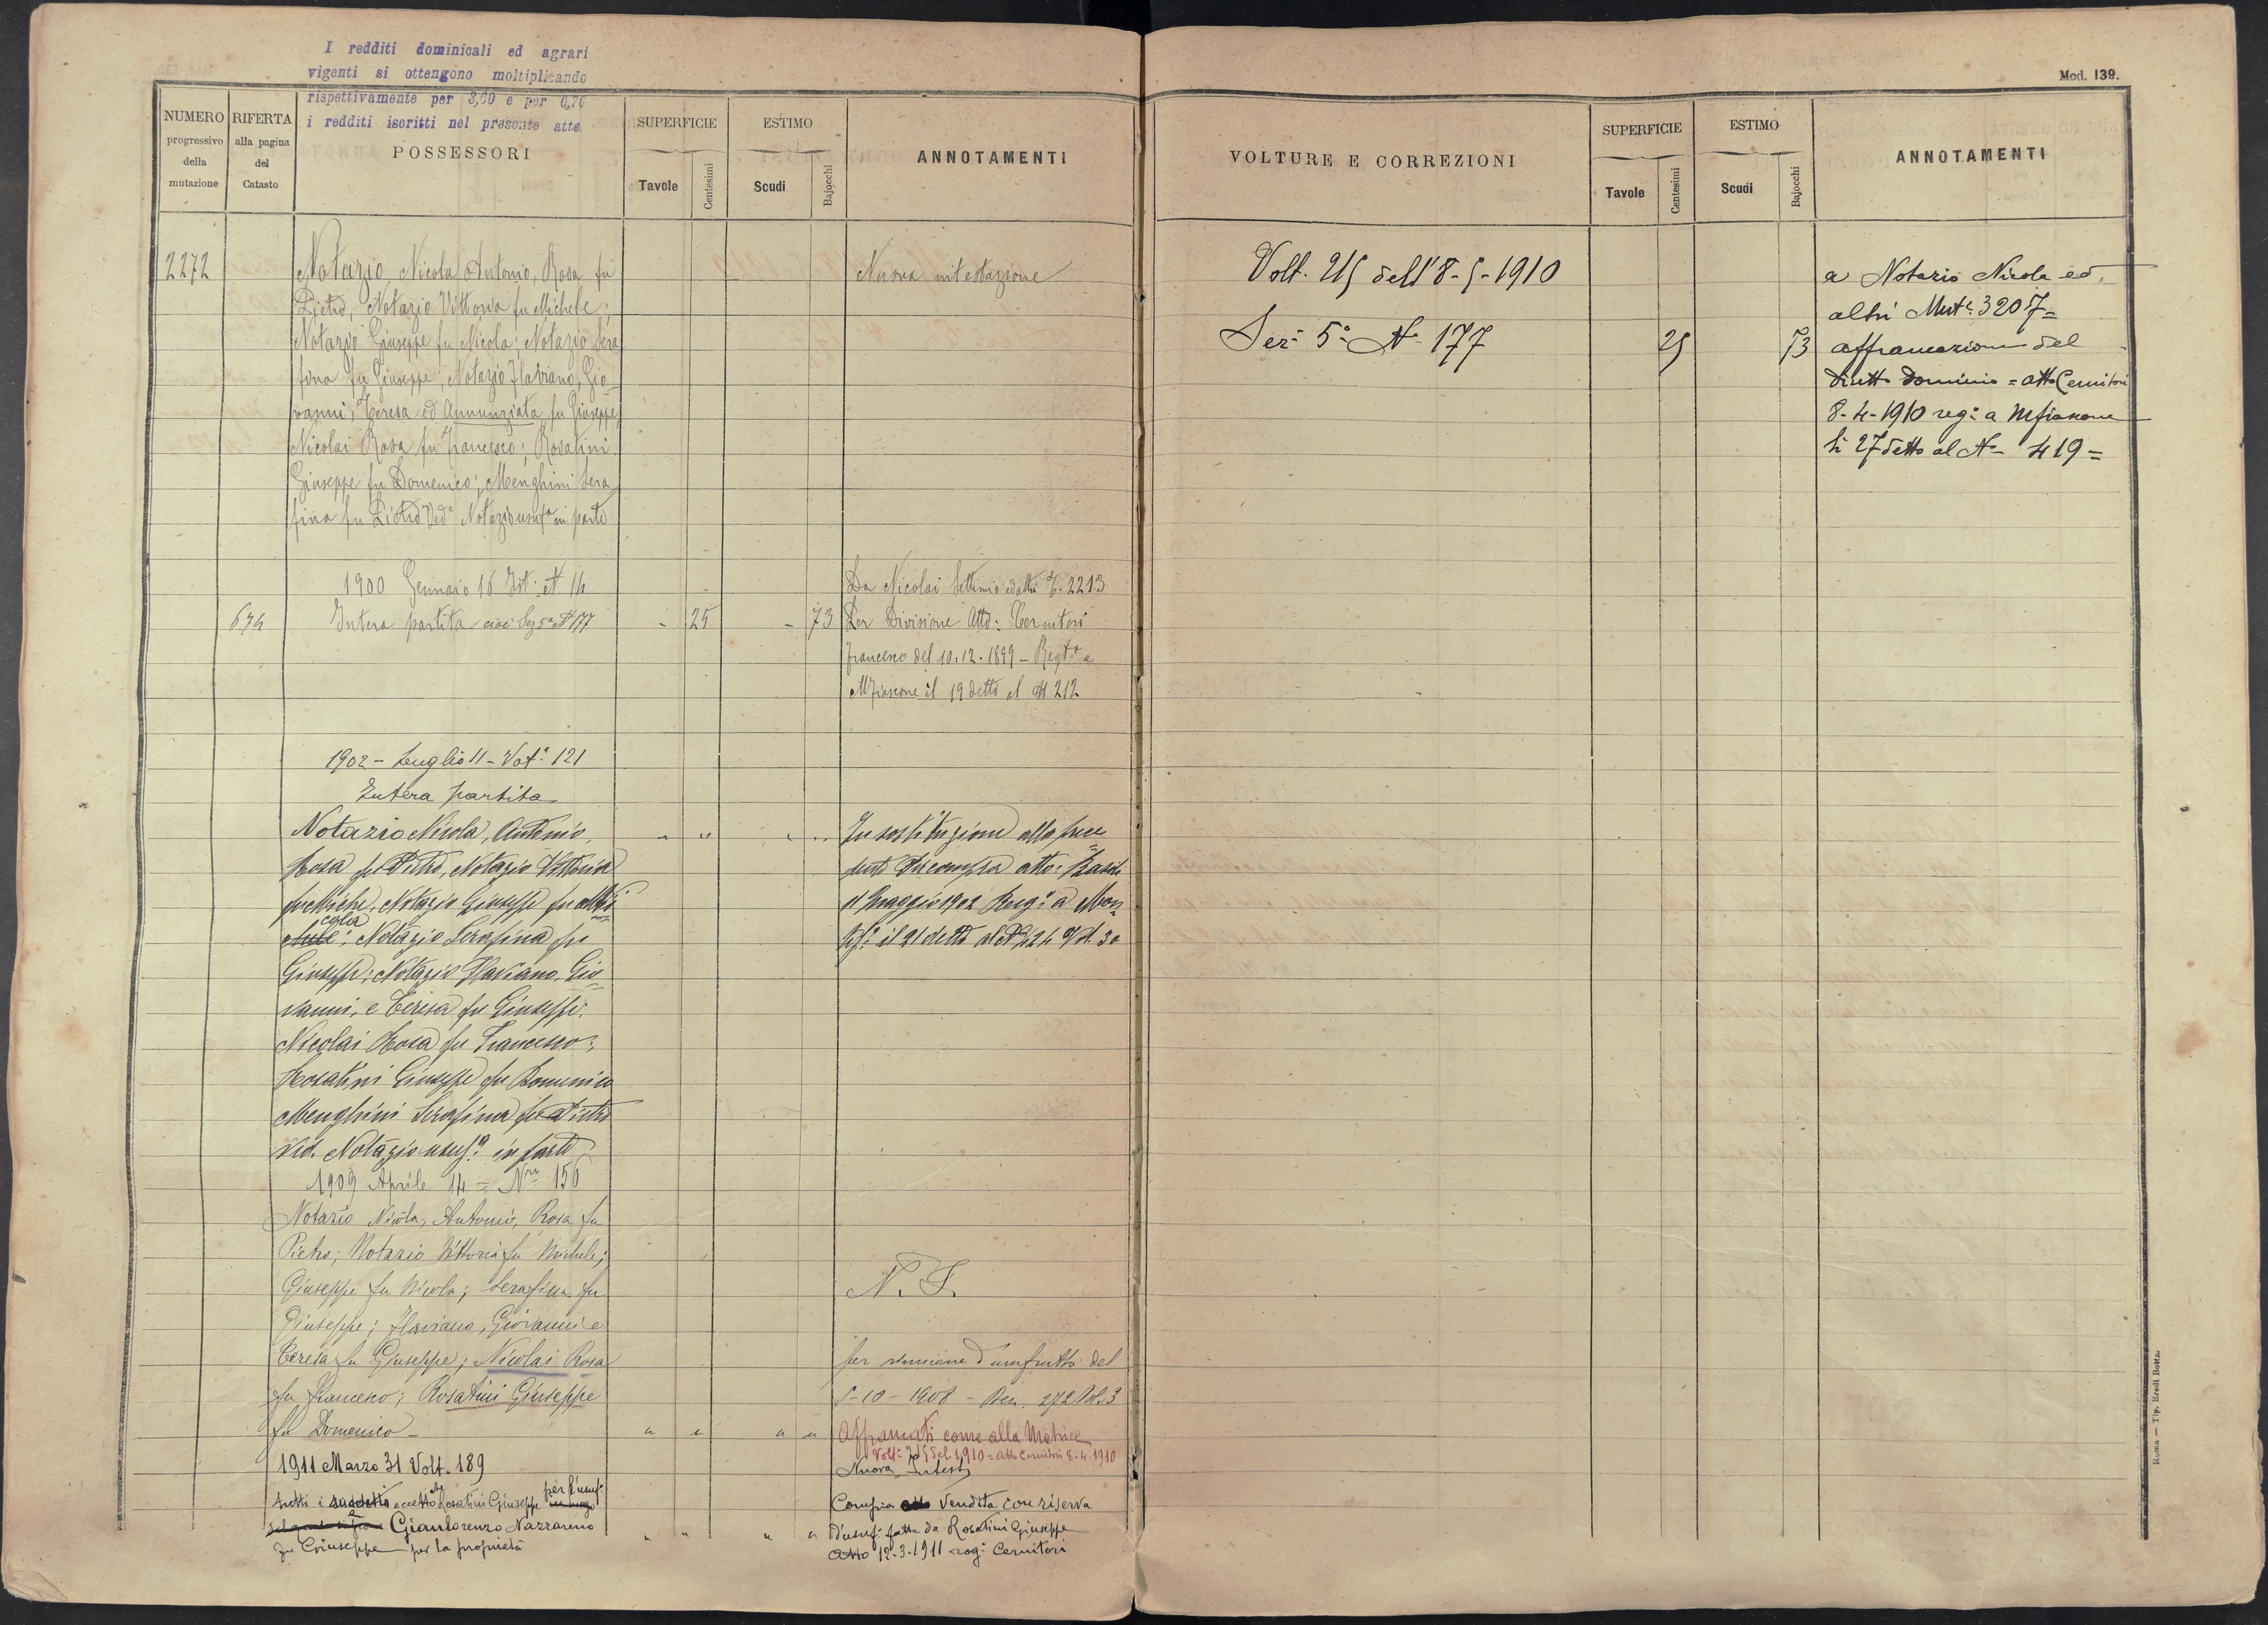 I redditi dominicali ed agrari
vigenti si ottengono moltiplicando
rispettivamente per 3,60 e per 0,70
i redditi iscritti nel presente atto.
NUMERO
progressivo
della
mutazione
RIFERTA
alla pagina
del
Catasto
POSSESSORI
SUPERFICIE
Tavole
Centesimi
ESTIMO
Scudi
Bajocchi
ANNOTAMENTI
2272
Notazio Nicola, Antonio, Rosa fu
Pietro, Notazio Vittoria fu Michele;
Notazio Giuseppe fu Nicola; Notazio Sera
fina fu Giuseppe; Notazio Flaviano, Gio-
vanni, Teresa ed Annunziata fu Giuseppe,
Nicolai Rosa fu Francesco; Rosatini
Giuseppe fu Domenico; Menghini Sera
fina fu Pietro Ved.a Notazio usuf.a in parte
Nuova intestazione
1900 Gennaio 16 N. 14
674 Intera partita cioè Sez 5a N 177 - 25 - 73
Da Nicolai Settimio ed altri 2213
Per Divisione Atto: Cernitori
Francesco del 10.12.1899 - Regto a
Mfiascone il 19 detto al N. 212
1902 - Luglio 11 - Vol.a 121
Intera partita
Notazio Nicola, Antonio,
Rosa fu Pietro, Notazio Vittoria
fu Miche, Notazio Giuseppe fu Ni
cola
chele; Notazio Serafina fu
Giuseppe; Notazio Flaviano, Gio=
vanni, e Teresa fu Giuseppe;
Nicolai Rosa fu Francesco;
Rosatini Giuseppe fu Domenico
Menghini Serafina fu Pietro
Ved. Notazio usuf.a in parte
" " " "
In sostituzione alla prece
dente atto:
11 Maggio 1902 Reg.o a Mon
il 21 detto al N. 424 Vol. 30
1909 Aprile 14 = N.ro 156
Notazio Nicola, Antonio, Rosa fu
Pietro; Notazio Vittoria fu Michele;
Giuseppe fu Nicola; Serafina fu
Giuseppe; Flaviano, Giovanni e
Teresa fu Giuseppe; Nicolai Rosa
fu Francesco; Rosatini Giuseppe
fu Domenico - " " " "
N. I.
per riunione d'usufrutto del
5-10-1908 - Den. 272 Vol. 3
Affrancati come alla Matrice
Volt. 215 del 1910 = atto Cernitori 8.4.1910
1911 Marzo 31 Volt. 189
tutti i suddetti eccetto che Rosatini Giuseppe per l'usuf.
e Gianlorenzo Nazzareno
fu Giuseppe per la proprietà
" " " "
Nuova Intest.
Compra vendita con riserva
d'usuf. fatta da Rosatini Giuseppe
Atto 12.3.1911 rog. Cernitori
Mod. 139.
VOLTURE E CORREZIONI
SUPERFICIE
Tavole
Centesimi
ESTIMO
Scudi
Bajocchi
ANNOTAMENTI
Volt. 215 dell'8-5-1910
Sez. 5a N. 177 25 73
a Notazio Nicola ed
altri Mut.e 3207=
affrancazione del
diretto dominio = atto Cernitori
8-4-1910 reg. a Mfiascone
li 27 detto al N. 419=
Roma — Tip. Eredi Botta.